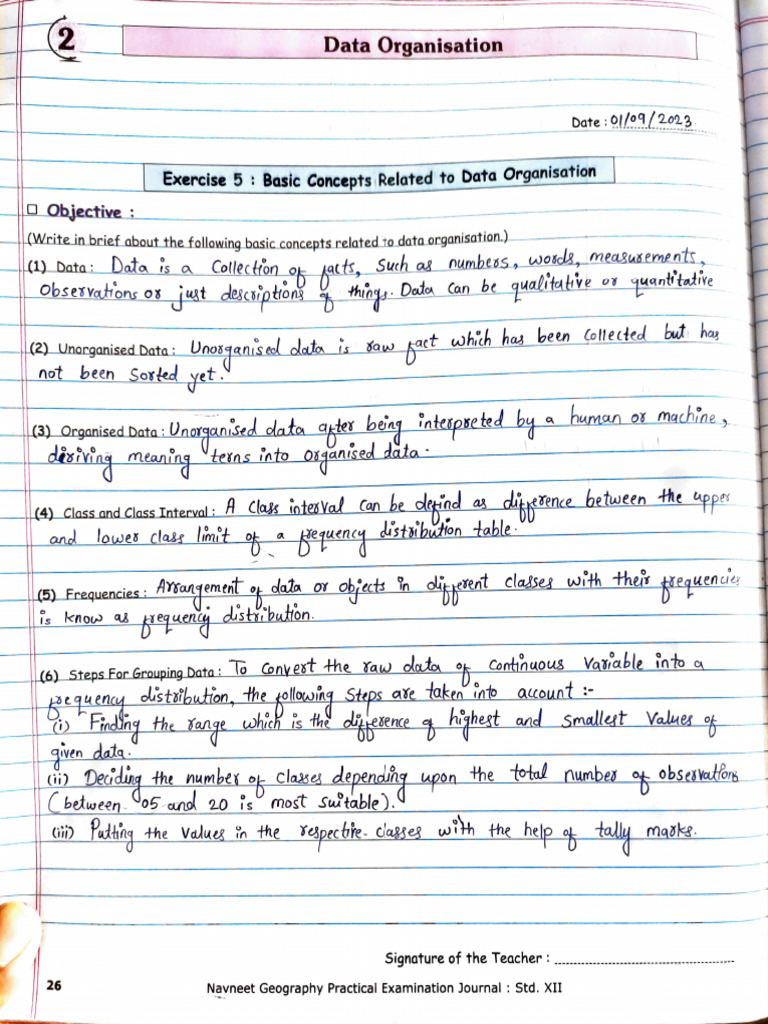 2
Data Organisation
Date : 01/09/2023
Exercise 5 : Basic Concepts Related to Data Organisation
☐ Objective :
(Write in brief about the following basic concepts related to data organisation.)
(1) Data : Data is a Collection of facts, such as numbers, words, measurements,
Observations or just descriptions of things. Data can be qualitative or quantitative
(2) Unorganised Data : Unorganised data is raw fact which has been collected but has
not been sorted yet.
(3) Organised Data : Unorganised data after being interpreted by a human or machine,
deriving meaning terns into organised data.
(4) Class and Class Interval : A class interval can be defind as difference between the upper
and lower class limit of a frequency distribution table.
(5) Frequencies : Arrangement of data or objects in different classes with their frequencies
is know as frequency distribution.
(6) Steps For Grouping Data : To convert the raw data of continuous variable into a
frequency distribution, the following steps are taken into account :-
(i) Finding the range which is the difference of highest and smallest values of
given data.
(ii) Deciding the number of classes depending upon the total number of observations
(between 05 and 20 is most suitable).
(iii) Putting the values in the respective classes with the help of tally marks.
Signature of the Teacher :
26
Navneet Geography Practical Examination Journal : Std. XII